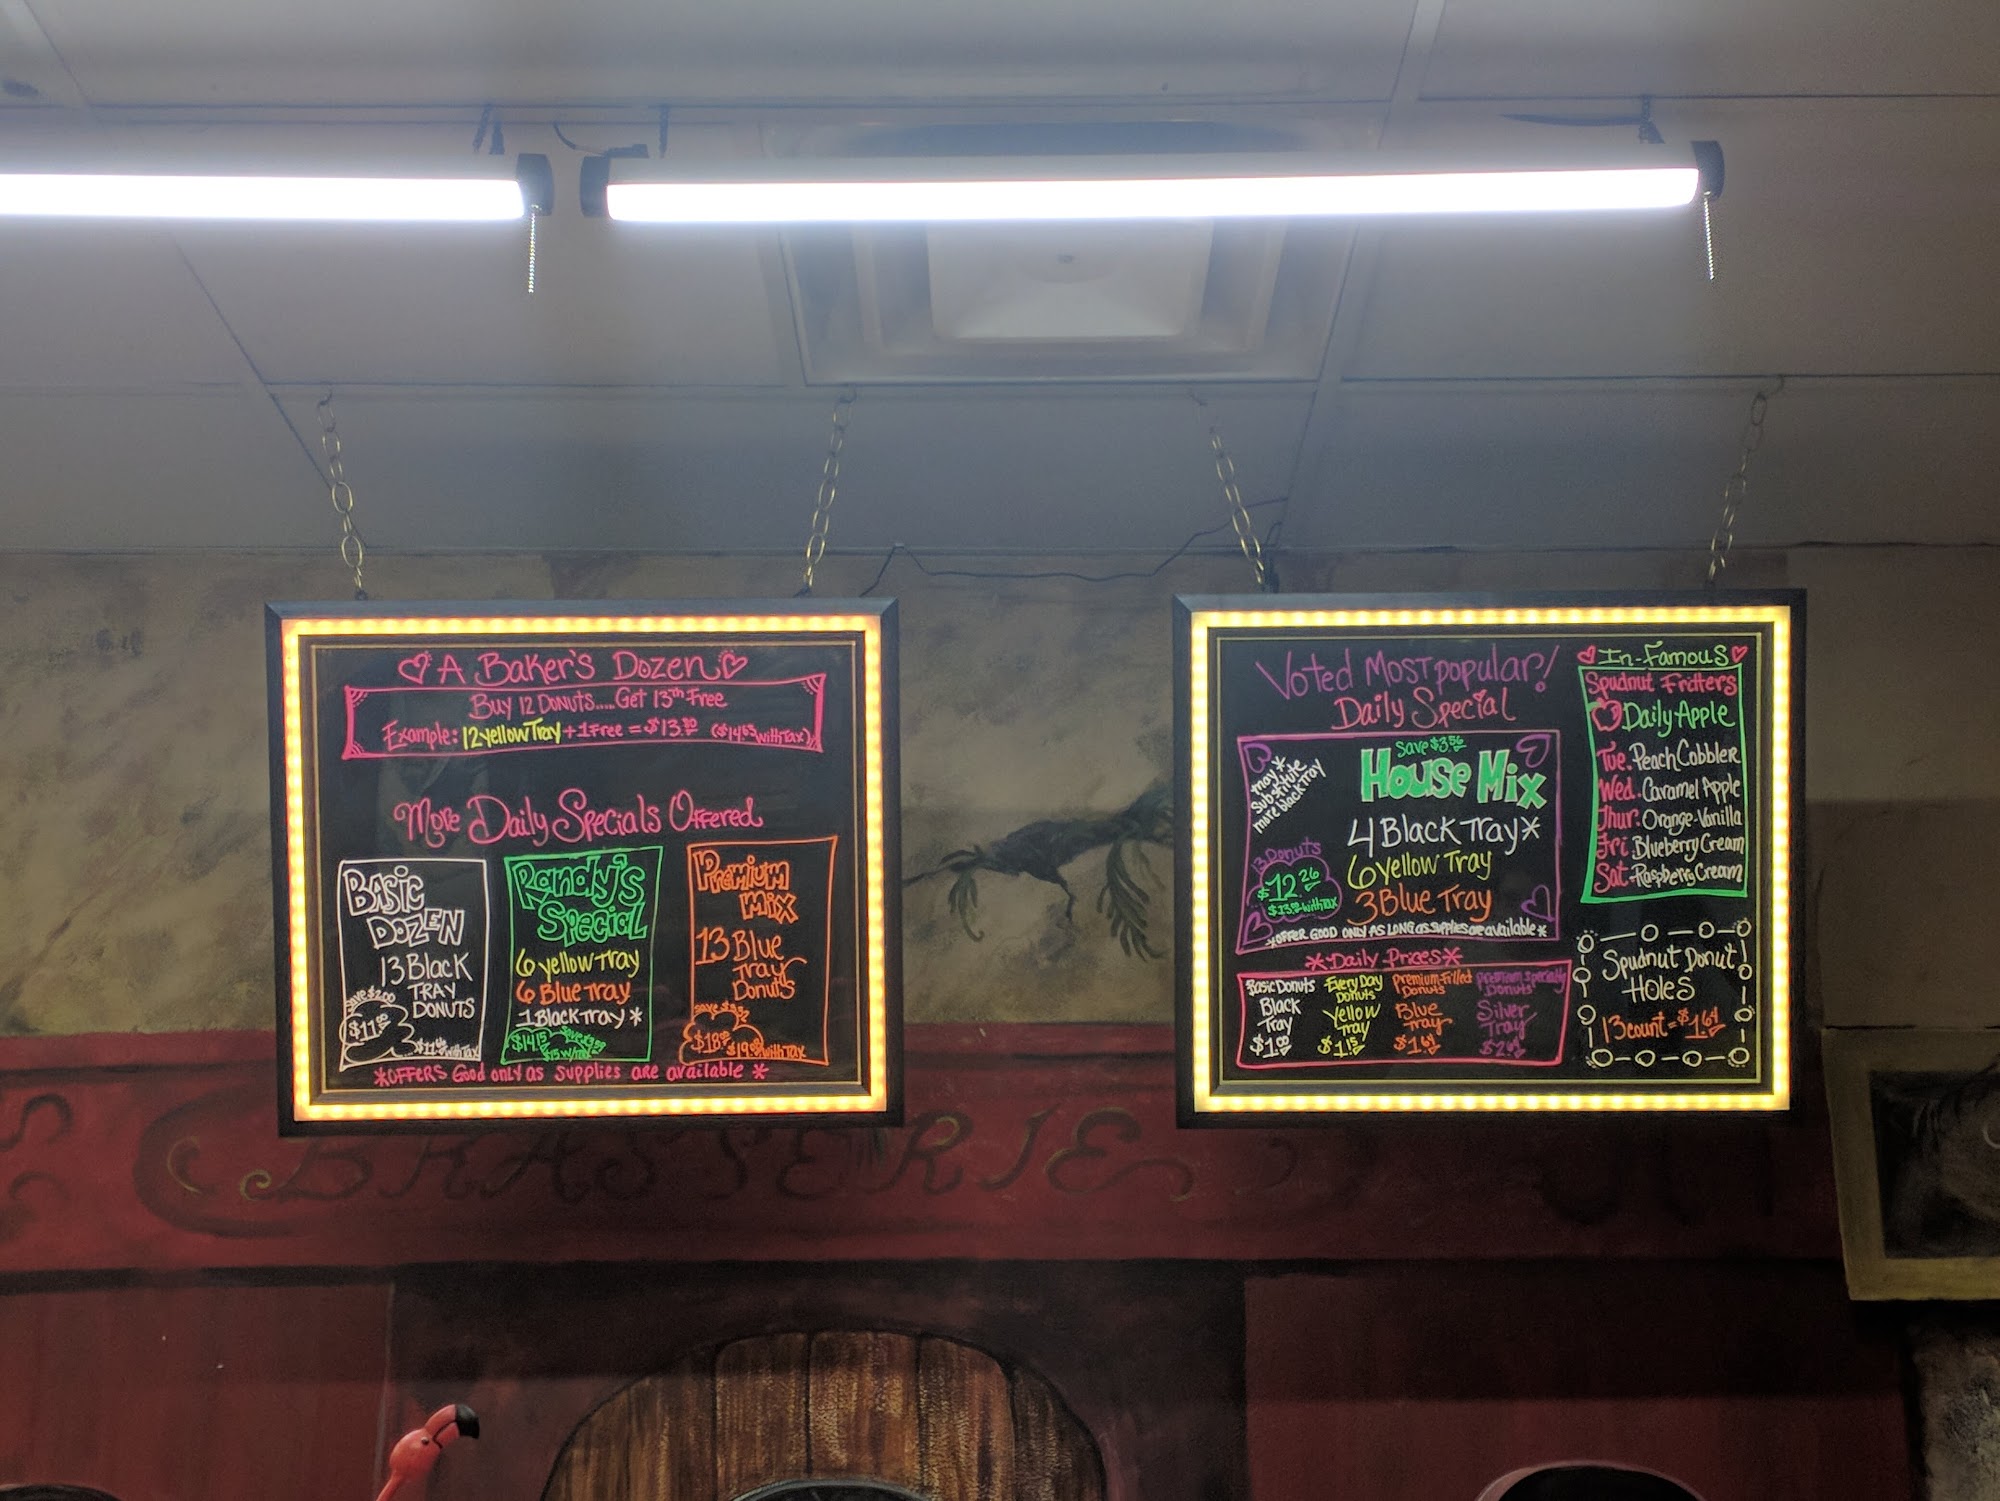 A Baker's Dozen
Buy 12 Donuts..... Get 13th Free
Example: 12 yellow Tray + 1 Free = $13.80 ($14.63 with Tax)
More Daily Specials Offered
Basic
Dozen
13 Black
Tray
Donuts
Save $2.00
$11.00
with Tax
Randy's
Special
6 yellow Tray
6 Blue Tray
1 Black Tray *
$14.15
Premium
Mix
13 Blue
Tray
Donuts
with Tax
*Offers Good only as supplies are available *
Voted Most popular!
Daily Special
Save $3.56
House Mix
may *
Substitute
more black tray
4 Black Tray*
6 yellow Tray
3 Blue Tray
13 Donuts
$12.26
with Tax
*Offer good only as long as supplies are available*
*Daily Prices*
Basic Donuts
Black
Tray
$1.00
Every Day
Donuts
Yellow
Tray
$1.15
Premium-Filled
Donuts
Blue
Tray
$1.64
Premium Specialty
Donuts
Silver
Tray
In-Famous
Spudnut Fritters
Daily Apple
Tue. Peach Cobbler
Wed. Caramel Apple
Thur. Orange-Vanilla
Fri. Blueberry Cream
Sat. Raspberry Cream
Spudnut Donut
Holes
13 count = $1.64
BRASSERIE